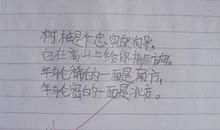 树桩是个忠实的向导，
它在高山上给你指点方向。
年轮稀的一面是南方，
年轮密的一面是北方。